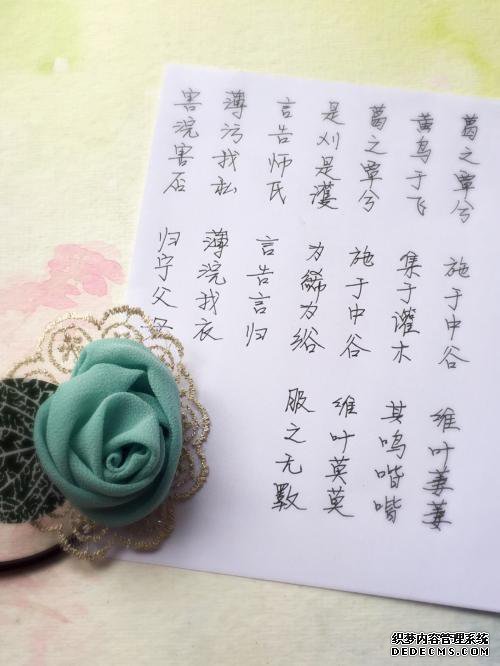 葛之覃兮 施于中谷 维叶萋萋
黄鸟于飞 集于灌木 其鸣喈喈
葛之覃兮 施于中谷 维叶莫莫
是刈是濩 为絺为绤 服之无斁
言告师氏 言告言归
薄污我私 薄浣我衣
害浣害否 归宁父母
织梦内容管理系统
DEDECMS.COM